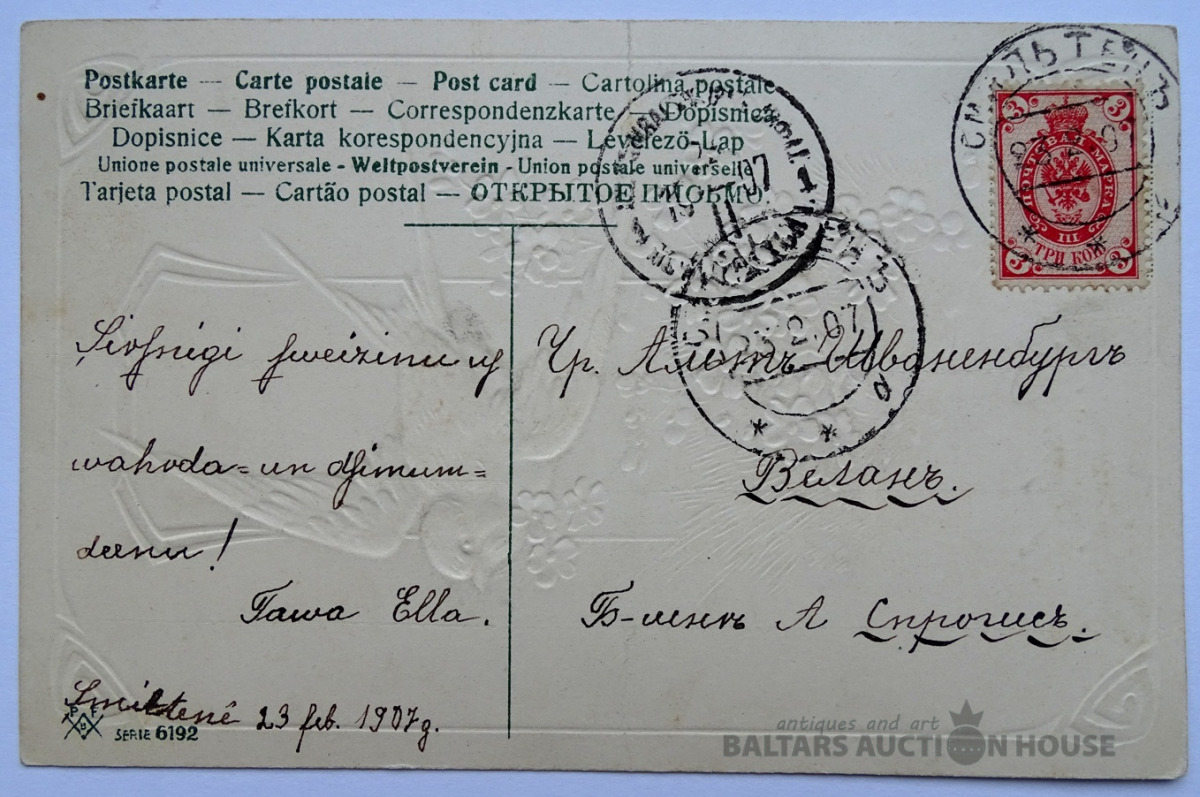 Postkarte — Carte postale — Post card — Cartolina postale
Briefkaart — Brefkort — Correspondenzkarte — Dopisnica
Dopisnice — Karta korespondencyjna — Levelező-Lap
Unione postale universale - Weltpostverein - Union postale universelle
Tarjeta postal — Cartão postal — ОТКРЫТОЕ ПИСЬМО.
СМИЛЬТЕНЪ
3 3
ПОЧТОВАЯ МАРКА
III
ТРИ КОП
3 3
ЕНЪ
23 2 07
Sirsnigi sweizinu
wahrda= un dsimum=
deenu!
Tawa Ella.
Smiltenē 23 feb. 1907g.
Чр. Альтъ Шваненбургъ
Веланъ.
А Спрогисъ.
P F B
SERIE 6192
antiques and art
BALTARS AUCTION HOUSE